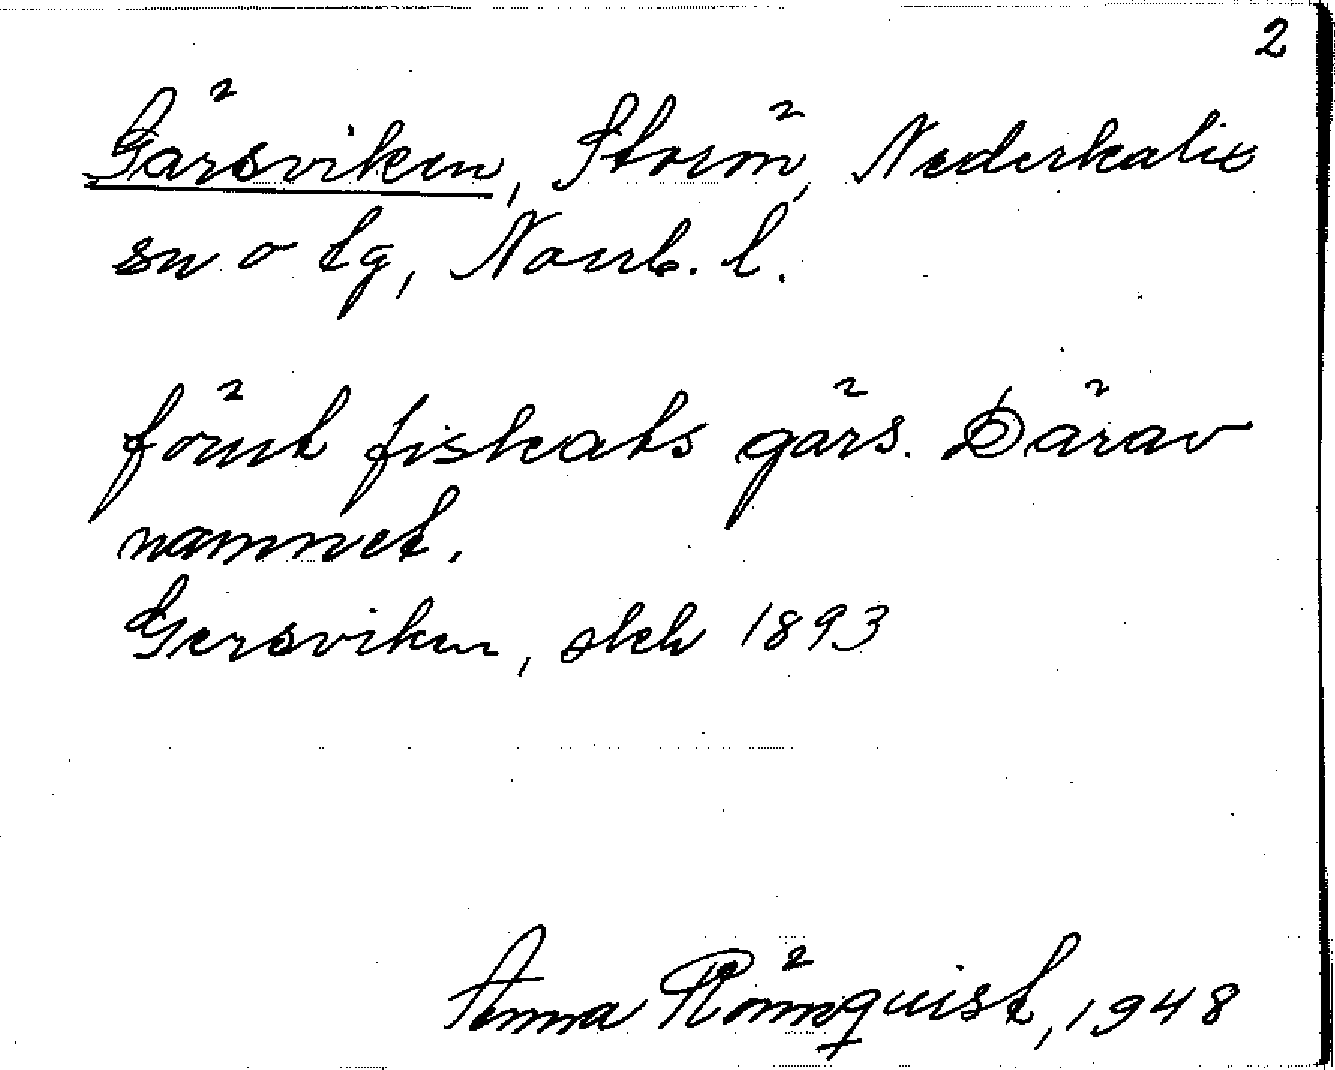 2
Gärsviken, Storön, Nederkalix
sn o tg, Norrb. l.
förut fiskats gärs. Därav
namnet.
Gersviken, stck 1893
Anna Rönnquist, 1948